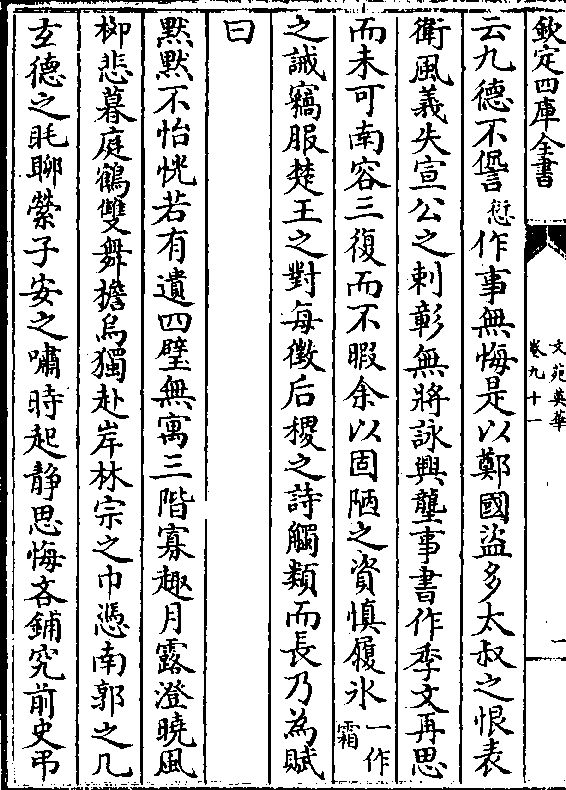 欽定四庫全書
文苑英華
卷九十一
一
云九德不愆作事無悔是以鄭國盜多太叔之恨表
衛風義失宣公之刺彰無將詠興塵事書作季文再思
而未可南容三復而不暇余以固陋之資慎履氷一作霜
之誡竊服楚王之對每徵后稷之詩觸類而長乃為賦
曰
默默不怡恍若有遺四壁無寓三階寡趣月露澄曉風
柳悲暮庭鶴雙舞檐烏獨赴岸林宗之巾憑南郭之几
玄德之眊聊縈子安之嘯時起静思悔吝鋪究前史弔